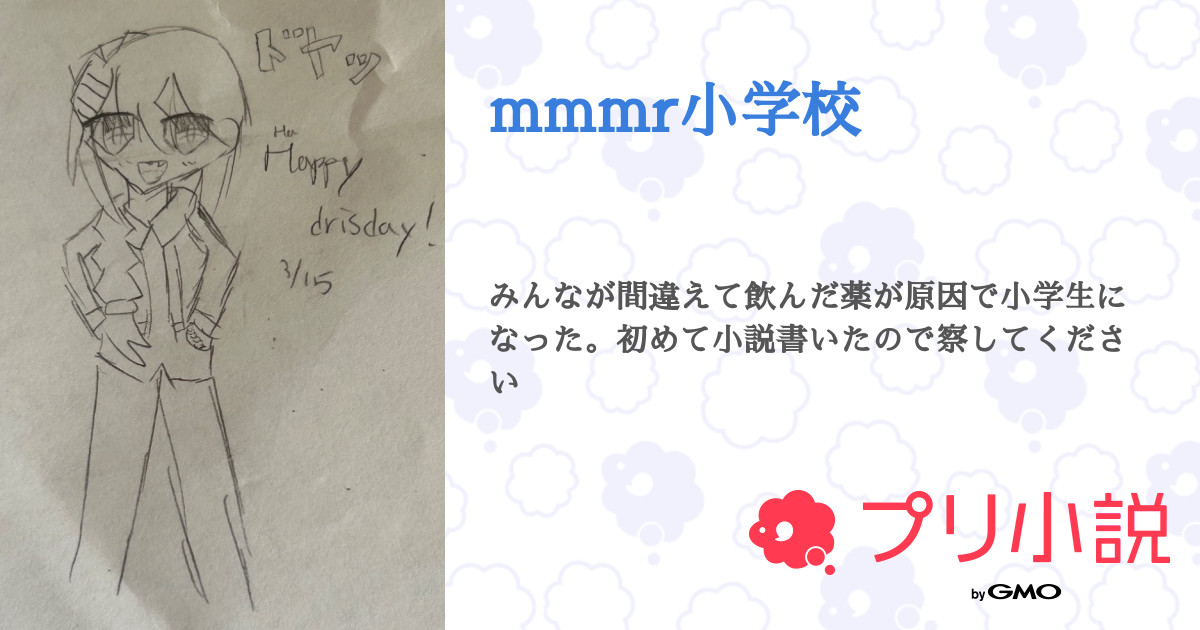 ドヤッ
Ha
Happy
drisday!
3/15
mmmr小学校
みんなが間違えて飲んだ薬が原因で小学生に
なった。初めて小説書いたので察してくださ
い
プリ小説
by GMO